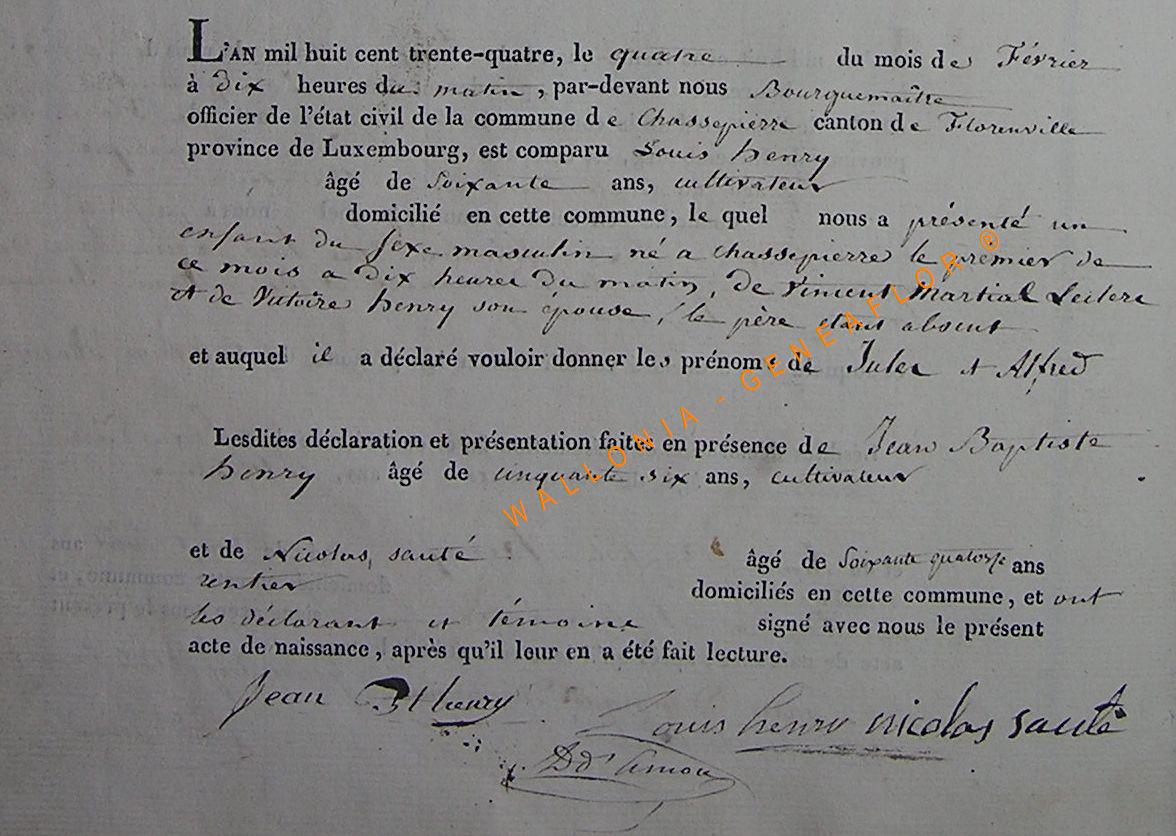 L'AN mil huit cent trente-quatre, le quatre du mois de Février
à dix heures du matin, par-devant nous Bourguemaître
officier de l'état civil de la commune de Chassepierre canton de Florenville
province de Luxembourg, est comparu Louis henry
âgé de Soixante ans, cultivateur
domicilié en cette commune, le quel nous a présenté un
enfant du sexe masculin né a chassepierre le premier de
ce mois a dix heures du matin, de Vincent Martial Leclerc
et de Victoire henry son épouse, le père étant absent
et auquel il a déclaré vouloir donner les prénoms de Jules et Alfred
Lesdites déclaration et présentation faites en présence de Jean Baptiste
henry âgé de cinquante six ans, cultivateur
et de Nicolas, sauté âgé de Soixante quatorze ans
rentier domiciliés en cette commune, et ont
les déclarant et témoins signé avec nous le présent
acte de naissance, après qu'il leur en a été fait lecture.
Jean Bt henry
Louis henry nicolas sauté
WALLONIA - GENEAFLOR ®